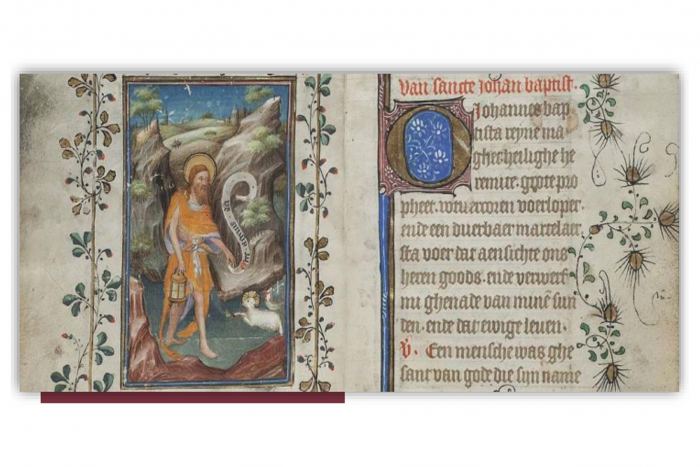 van sancte johan baptist.
O Johannes bap
tista reyne ma
ghet heilighe he
remite. grote pro
pheet. wtvercoren voerloper.
ende een duerbaer martelaer
sta voer dat aensichte ons
heren goods. ende verwerf
mi ghenade van minē sun
den. ende dat ewige leuen.
V. Een mensche was ghe
sant van gode die sijn name